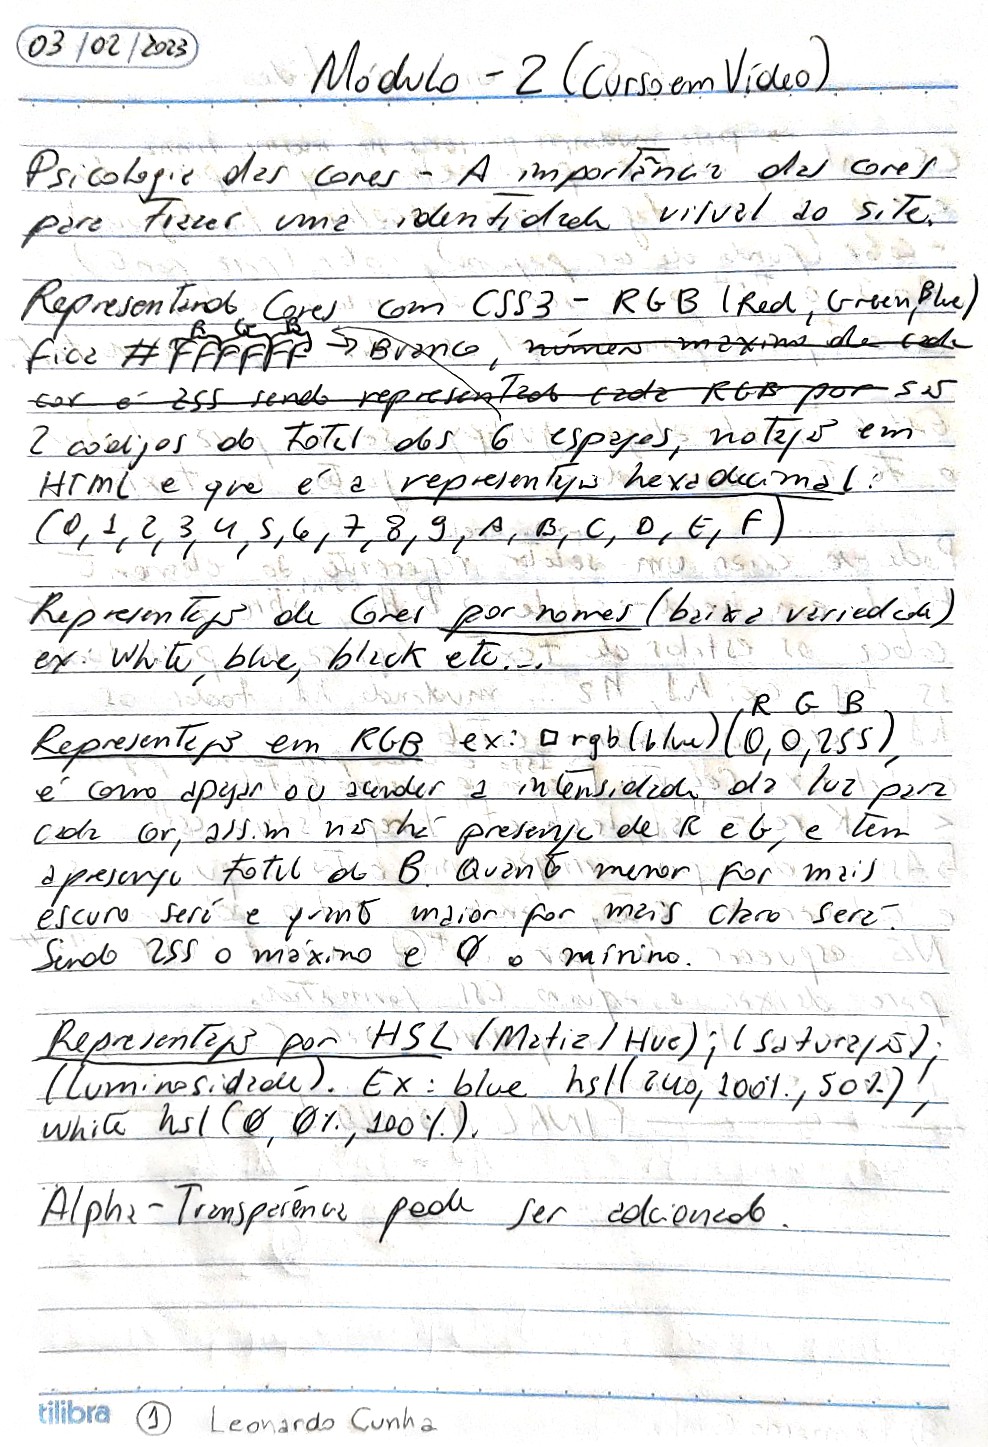 03/02/2023
Módulo - 2 (Curso em Vídeo)
Psicologia das cores - A importância das cores
para trazer uma identidade visual ao site.
Representando Cores com CSS3 - RGB (Red, Green, Blue)
R G B
fica #FFFFFF → Branco, número maximo de cada
cor é 255 sendo representado cada RGB por são
2 códigos do total dos 6 espaços, notação em
HTML e que é a representação hexadecimal:
(0, 1, 2, 3, 4, 5, 6, 7, 8, 9, A, B, C, D, E, F)
Representação de Cores por nomes (baixa variedade)
ex: White, blue, black etc...
R G B
Representação em RGB ex: □ rgb(blue)(0,0,255),
é como apagar ou acender a intensidade da luz para
cada cor, assim não há presença de R e G, e tem
a presença total do B. Quanto menor for mais
escuro será e quanto maior for mais claro será.
Sendo 255 o máximo e 0 o mínimo.
Representação por HSL (Matiz/Hue); (Saturação);
(Luminosidade). Ex: blue hsl(240, 100%, 50%);
white hsl(0, 0%, 100%).
Alpha - Transparência pode ser adcionado.
tilibra 1 Leonardo Cunha